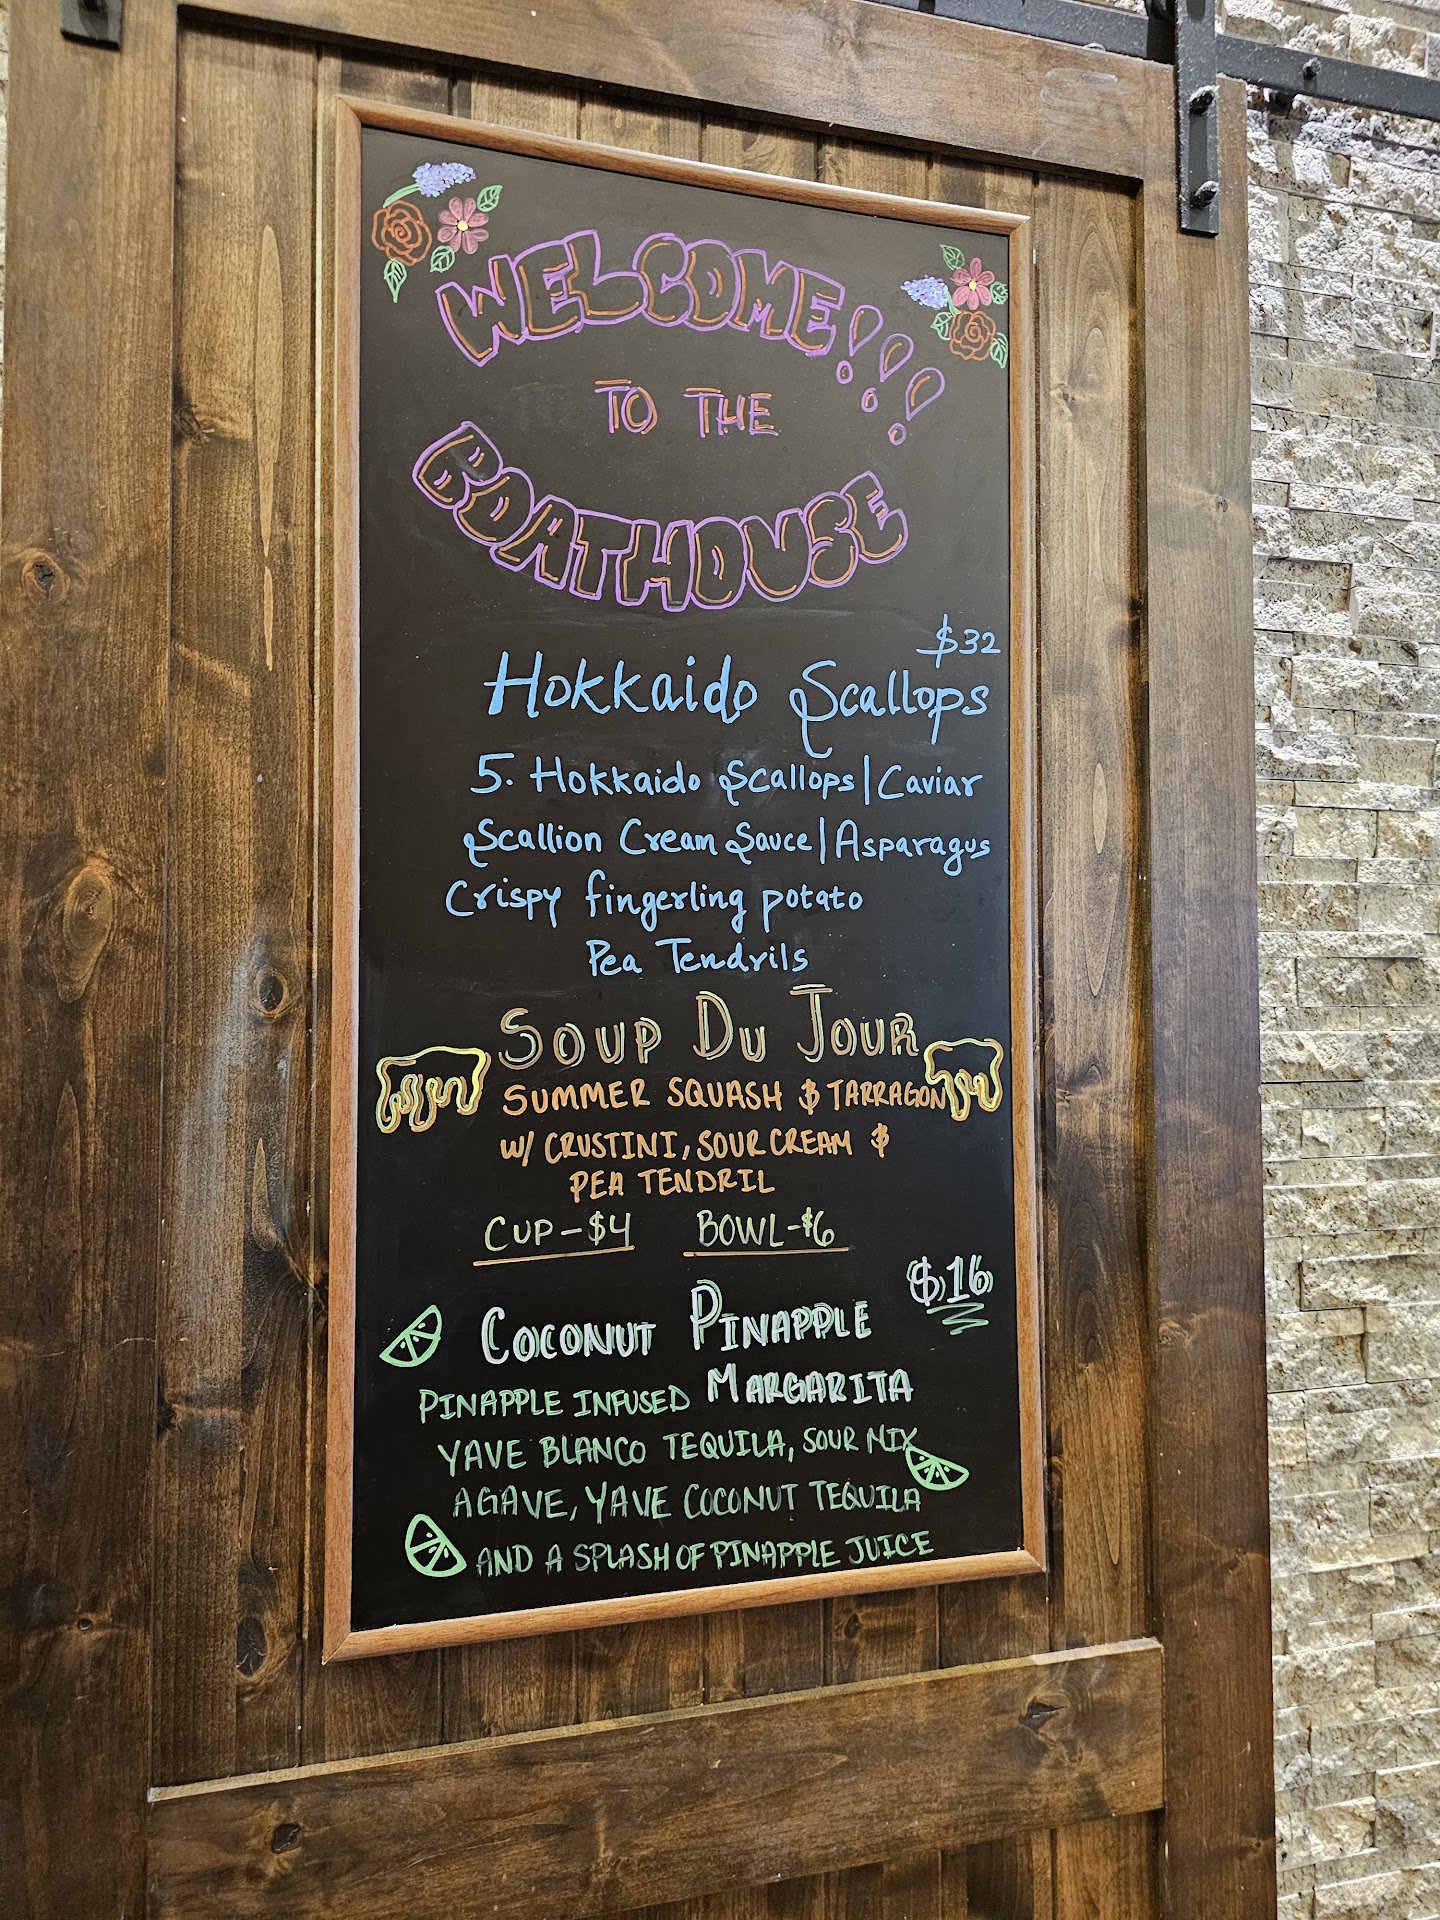 WELCOME!!!
TO THE
BOATHOUSE
$32
Hokkaido Scallops
5. Hokkaido Scallops | Caviar
Scallion Cream Sauce | Asparagus
Crispy fingerling potato
Pea Tendrils
SOUP DU JOUR
SUMMER SQUASH & TARRAGON
W/ CRUSTINI, SOUR CREAM &
PEA TENDRIL
CUP-$4 BOWL-$6
$16
COCONUT PINAPPLE
MARGARITA
PINAPPLE INFUSED
YAVE BLANCO TEQUILA, SOUR MIX
AGAVE, YAVE COCONUT TEQUILA
AND A SPLASH OF PINAPPLE JUICE